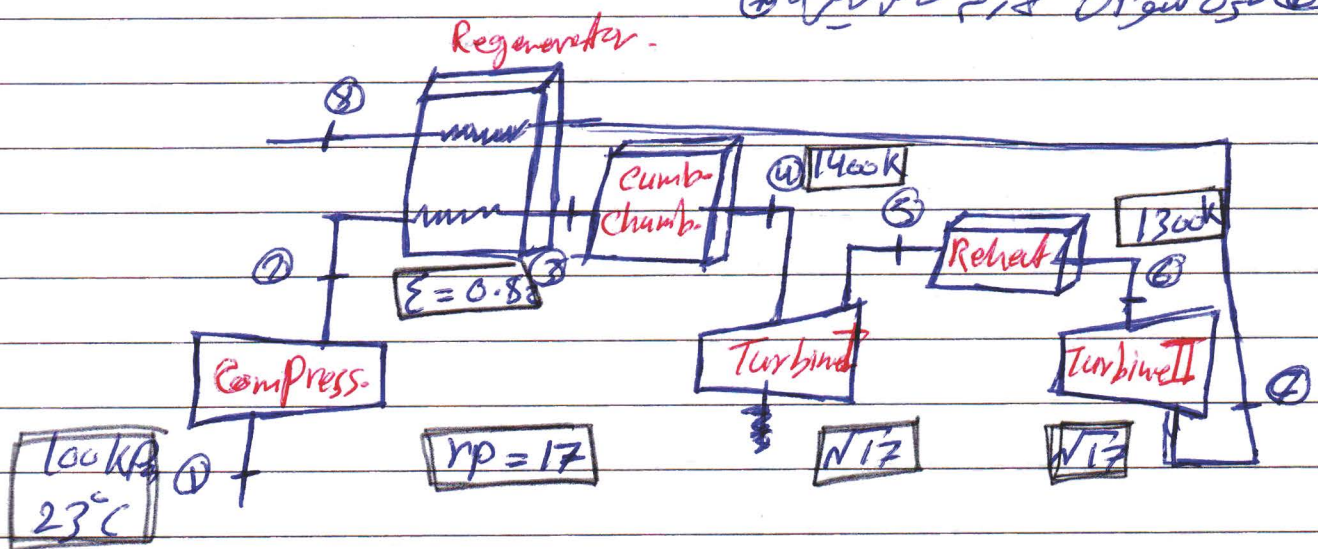 Regenerator.
⑧
Cumb.
Chamb.
④ 1400K
⑤
1300K
Reheat
⑥
②
③
ε = 0.8
Compress.
Turbine I
Turbine II
⑦
100 kPa
23°C
①
rp = 17
√17
√17